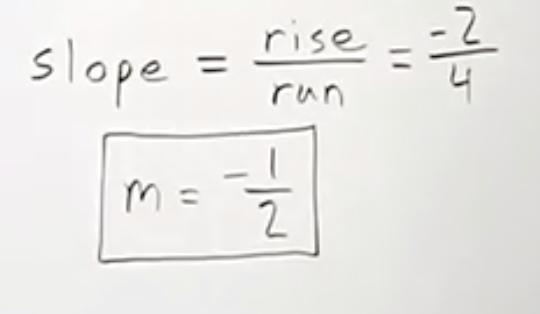 slope = rise/run = -2/4
m = -1/2